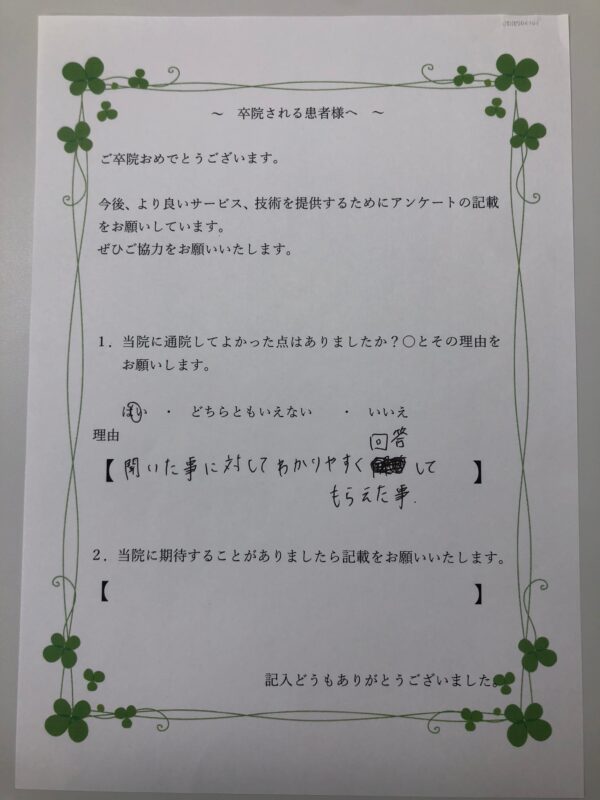 ～　卒院される患者様へ　～
ご卒院おめでとうございます。
今後、より良いサービス、技術を提供するためにアンケートの記載
をお願いしています。
ぜひご協力をお願いいたします。
１．当院に通院してよかった点はありましたか？〇とその理由を
お願いします。
はい　・　どちらともいえない　・　いいえ
理由
回答
【聞いた事に対してわかりやすくして】
もらえた事.
２．当院に期待することがありましたら記載をお願いいたします。
【　】
記入どうもありがとうございました。